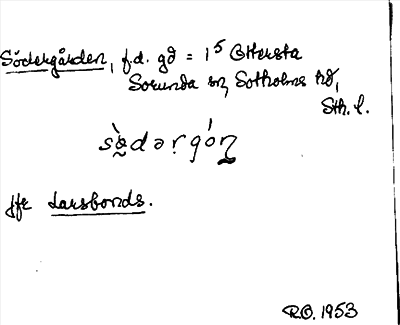 Södergården, f.d. gd = 1⁵ Ottersta
Sorunda sn, Sotholms hd,
Sth. l.
sö̀dərgón
jfr Larsbonds.
R.O. 1953